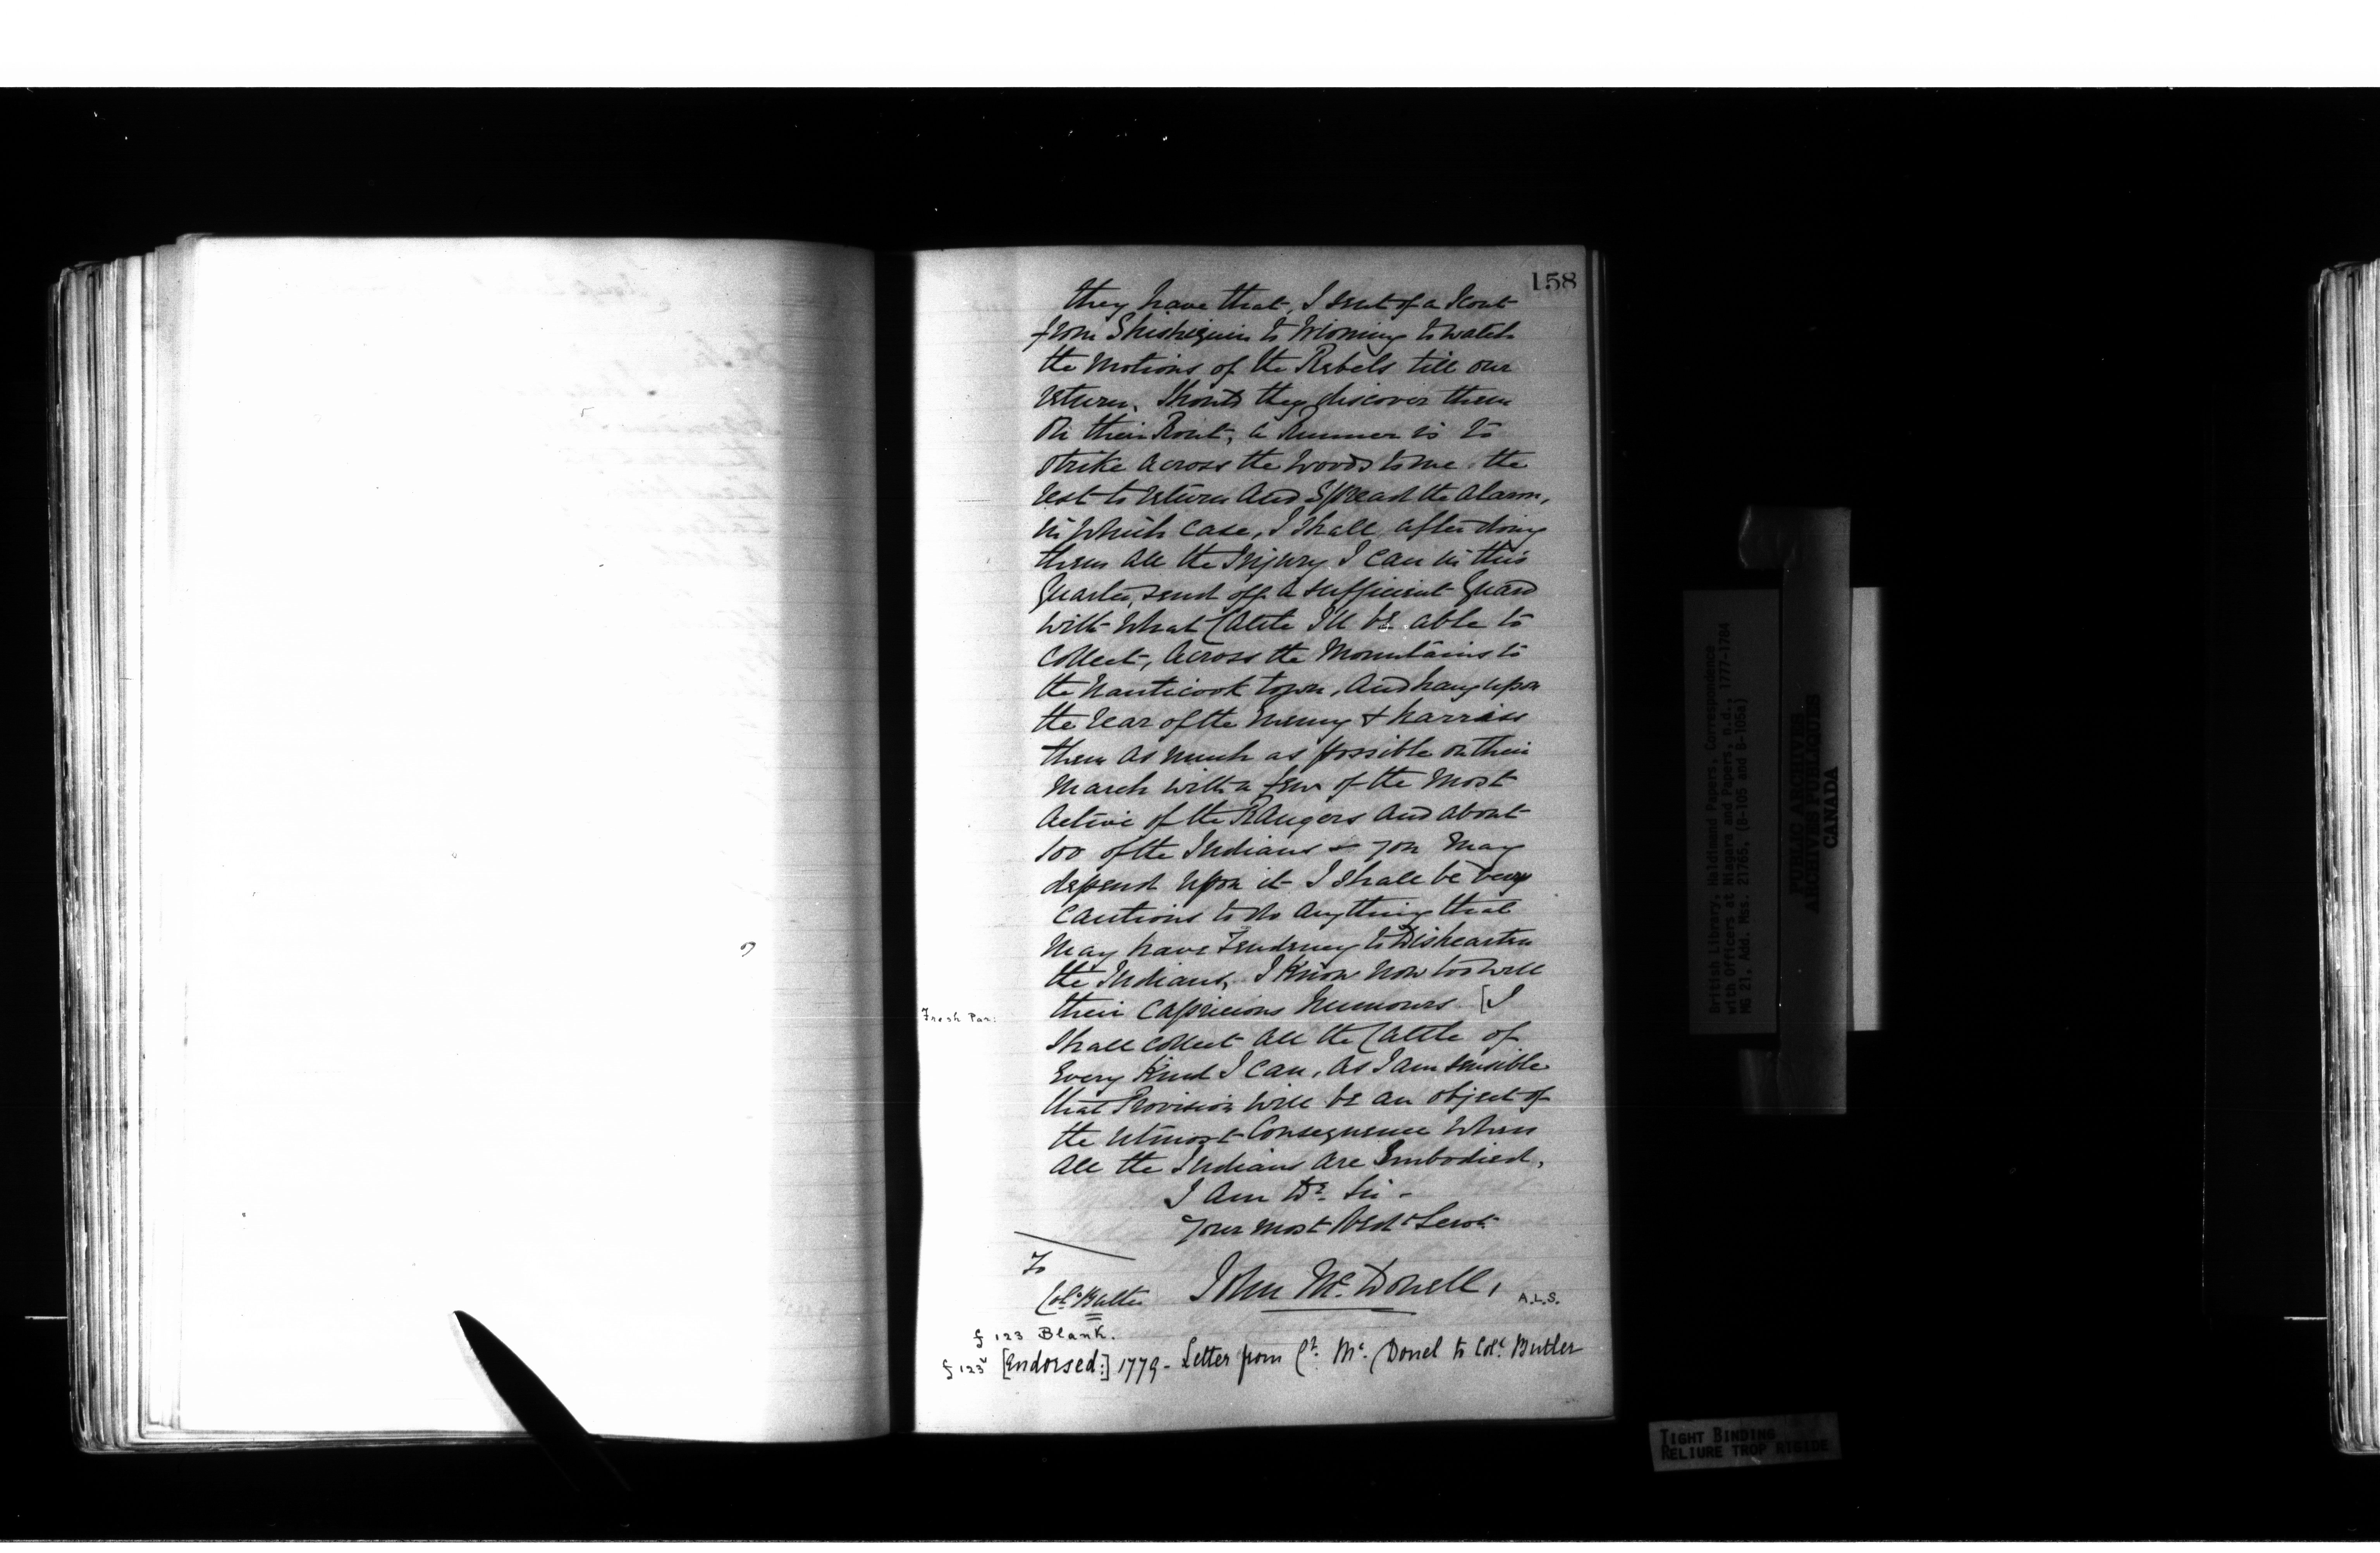 158
they have that, I sent of a Scout
from Shishiquin to Wioming to watch
the Motions of the Rebels till our
return. Should they discover them
On their Rout, a Runner is to
strike Across the Woods to me the
rest to return And Spread the Alarm,
in Which Case, I Shall after doing
them All the Injury I can in this
Quarter, send off a sufficient Guard
With What Cattle I'll be able to
Collect, Across the Mountains to
the Nanticook town, And hang upon
the rear of the Enemy & harrass
them As much as possible on their
March with a few of the Most
Active of the RAngers And About
100 of the Indians & you May
depend upon it I Shall be very
Cautious to do Any thing that
May have Tendency to Dishearten
the Indians, I Know Now too well
their Capricious Humours [I
Fresh Par:
Shall Collect All the Cattle of
Every Kind I Can, As I am sensible
that Provision Will be an object of
the Utmost Consequence When
All the Indians Are Embodied,
I Am Dr. Sir -
Your Most Obdt Servt
To
Colo. Butler John Mc. Donell, A.L.S.
f 123 Blank.
f 123v [Endorsed:] 1779 - Letter from Ct. Mc. Donel to Colo. Butler
British Library, Haldimand Papers, Correspondence
with Officers at Niagara and Papers, n.d., 1777-1784
MG 21, Add. Mss. 21765, (B-105 and B-105a)
PUBLIC ARCHIVES
ARCHIVES PUBLIQUES
CANADA
TIGHT BINDING
RELIURE TROP RIGIDE